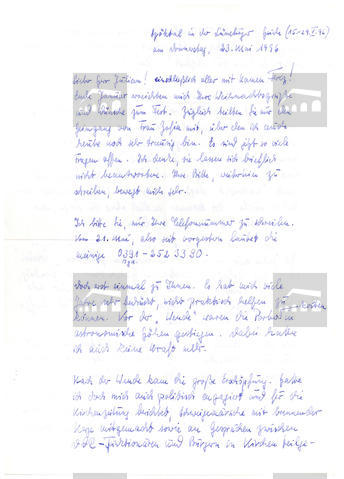 in der Lüneburger Heide (15.-29.V.96)
am Donnerstag, 23. Mai 1996
Lieber Herr Juliam! einschließlich aller mit Namen
Ende Januar erreichten mich Ihre Weihnachtsgrüße
und Wünsche zum Fest. Zugleich teilten Sie mir den
Heimgang von Frau Sofia mit, über den ich auch
heute noch sehr traurig bin. Es sind jetzt so viele
Fragen offen. Ich denke, sie lassen sich brieflich
nicht beantworten. Ihre Bitte, weiterhin zu
schreiben, bewegt mich sehr.
Ich bitte Sie, mir Ihre Telefonnummer zu schreiben.
Vom 21. Mai, also seit vorgestern lautet die
meinige 0391-252 3390.
Doch erst einmal zu Ihnen. Es hat mich viele
Jahre sehr bedrückt, nicht praktisch helfen zu
können. Vor der "Wende" waren die Portos in
astronomische Höhen gestiegen. Dabei hatte
ich auch keine Kraft mehr.
Nach der Wende kam die große Erschöpfung. Habe
ich doch mich auch politisch engagiert und für die
Kirchenzeitung berichtet, Schweigemärsche mit brennender
Kerze mitgemacht sowie an Gesprächen zwischen
DDR-Funktionären und Bürgern in Kirchen teilge-